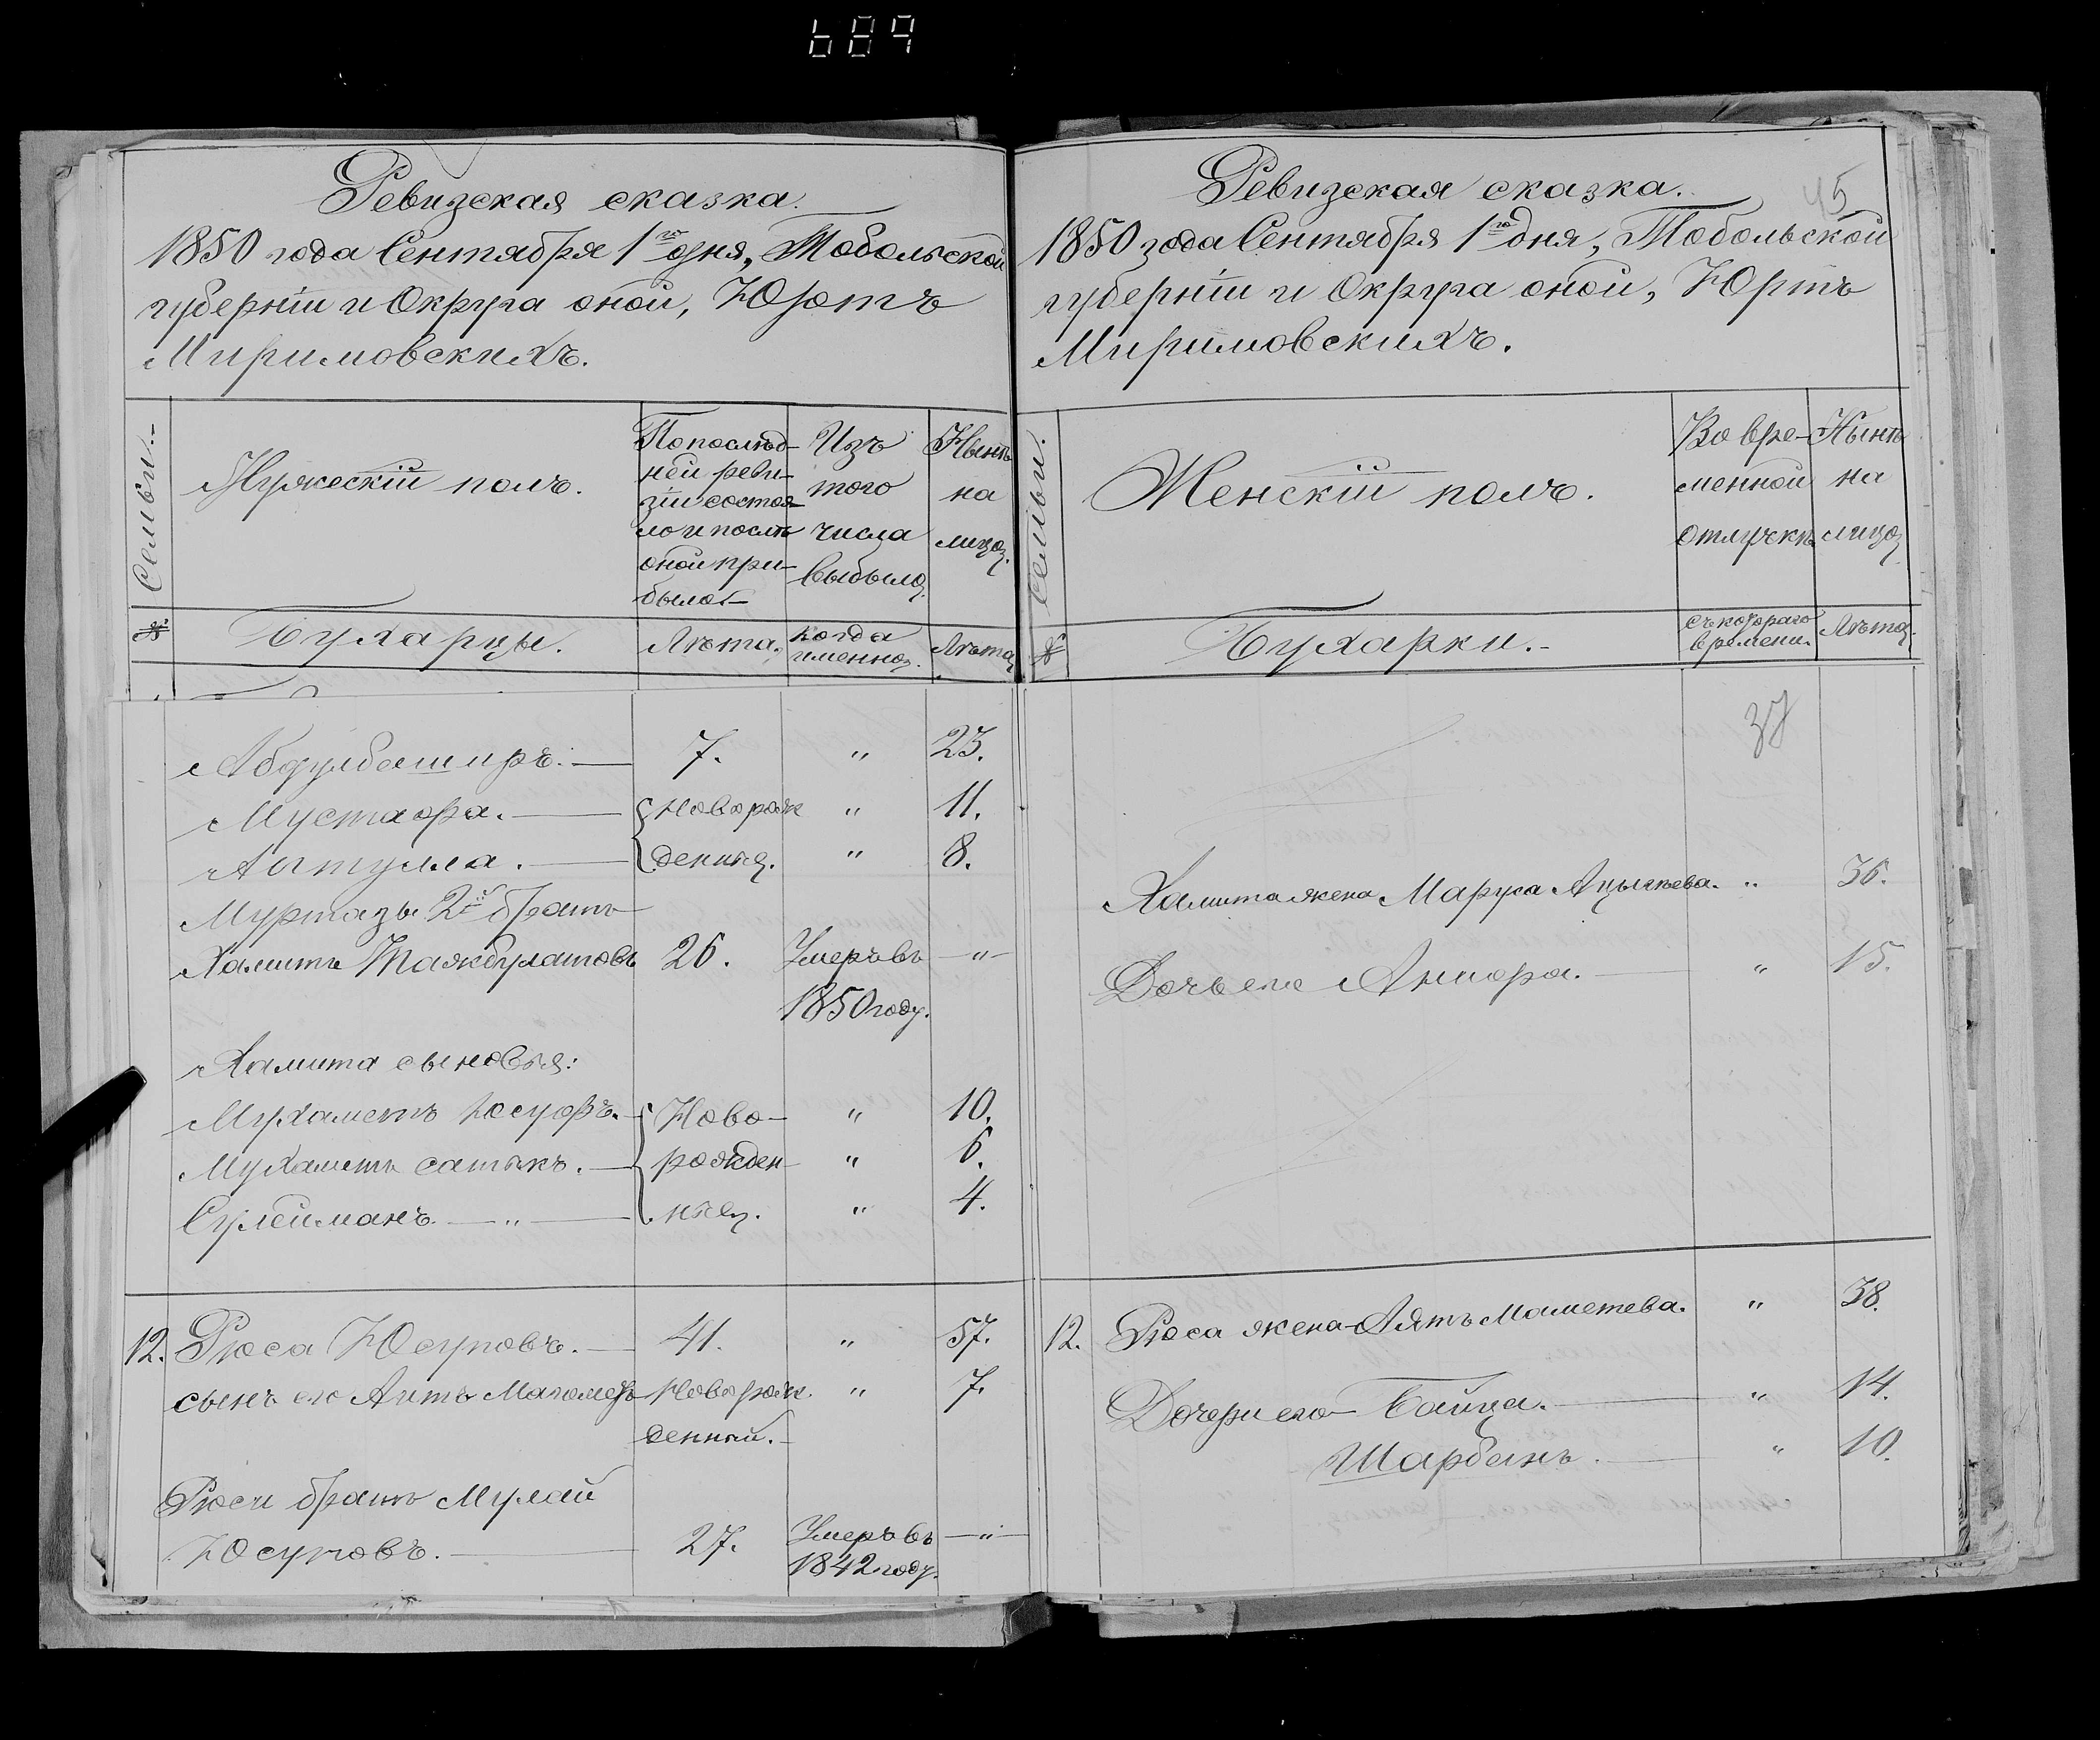 689
Ревизская сказка.
1850 года Сентября 1го дня, Тобольской
губернiи и Округа оной, Юртъ
Миримовскихъ.
Семьи.
Мужескiй полъ.
По послѣд-
ней реви-
зiи состоя-
ло и послѣ
оной при-
было
Изъ
того
числа
выбыло.
Нынѣ
на
лицо.
№
Бухарцы.
Лѣта.
когда
именно.
Лѣта
Абдулбаширъ. 7. " 23.
Мустафа. Новорож " 11.
денныя. " 8.
Муртазы 2й братъ
Хамитъ Таякбулатовъ 26. Умеръ въ "
1850 году.
Хамита сыновья:
Мухаметъ Юсуфъ. Ново- " 10.
Мухаметъ сатыкъ. рожден- " 6.
Сулейманъ " ныя. " 4.
12. Рюса Юсуповъ. 41. " 57.
сынъ его Аитъ Новорож. " 7.
денный.
Рюси братъ Мулай
Юсуповъ. 27. Умеръ въ "
1842 году.
45
Ревизская сказка.
1850 года Сентября 1го дня, Тобольской
губернiи и Округа оной, Юртъ
Миримовскихъ.
Семьи.
Женскiй полъ.
Во вре-
менной
отлучкѣ
Нынѣ
на
лицо
№
Бухарки.
съ котораго
времени.
Лѣта.
37
Хамита жена Маруса " 36.
Дочь его " 15.
12. Рюса жена Маметева. " 38.
Дочери его " 14.
Шарбанъ. " 10.